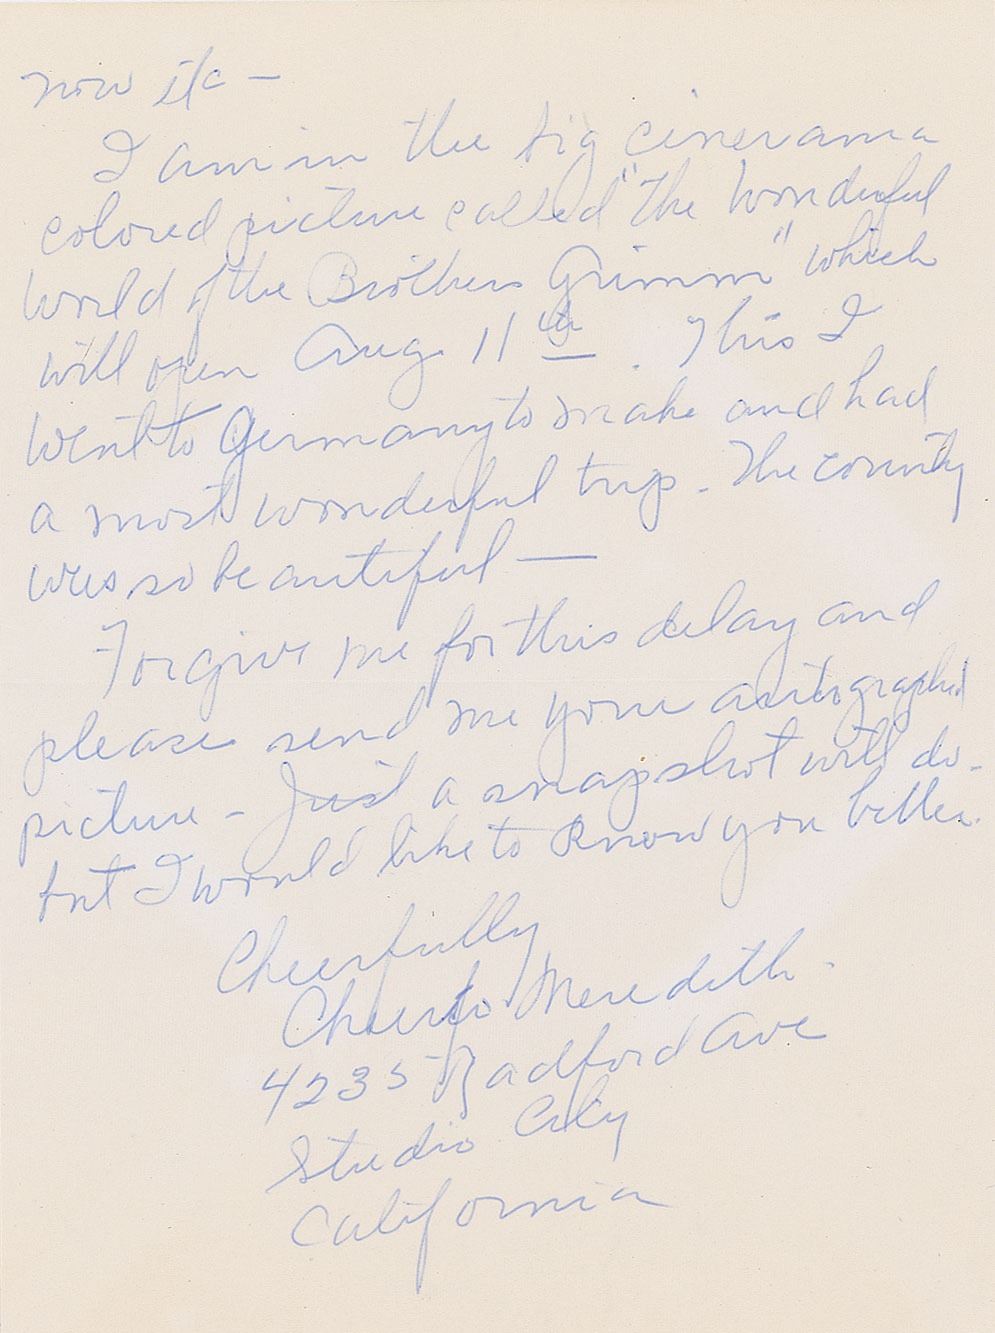 now etc —
I am in the big cinerama
colored picture called "The Wonderful
World of the Brothers Grimm" which
will open Aug. 11th. This I
went to Germany to make and had
a most wonderful trip. The country
was so beautiful —
Forgive me for this delay and
please send me your autographed
picture - Just a snapshot will do -
but I would like to know you better.
Cheerfully
Cheerio Meredith -
4235 Radford Ave
Studio City
California